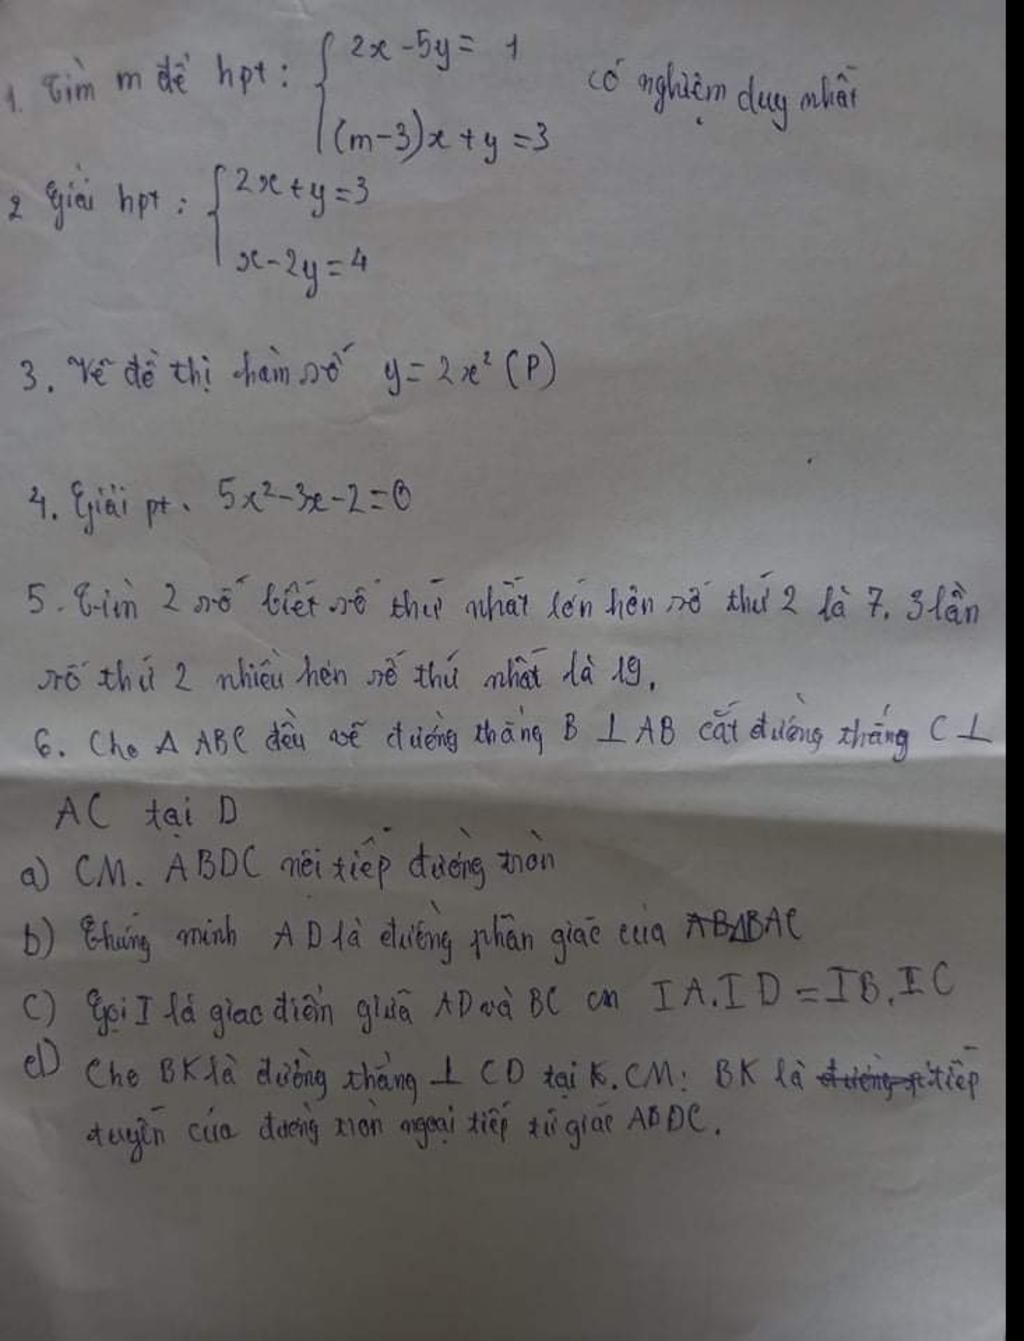 1. Tìm m để hpt: { 2x - 5y = 1 có nghiệm duy nhất
(m-3)x + y = 3
2 Giải hpt: { 2x + y = 3
x - 2y = 4
3. Vẽ đồ thị hàm số y = 2x² (P)
4. Giải pt. 5x² - 3x - 2 = 0
5. Tìm 2 số biết số thứ nhất lớn hơn số thứ 2 là 7. 3 lần
số thứ 2 nhiều hơn số thứ nhất là 19.
6. Cho Δ ABC đều vẽ đường thẳng B ⊥ AB cắt đường thẳng C ⊥
AC tại D
a) CM. ABDC nội tiếp đường tròn
b) Chứng minh AD là đường phân giác của ΔBAC
c) Gọi I là giao điểm giữa AD và BC cm IA.ID = IB.IC
d) Cho BK là đường thẳng ⊥ CD tại K. CM: BK là tiếp
tuyến của đường tròn ngoại tiếp tứ giác ABDC.